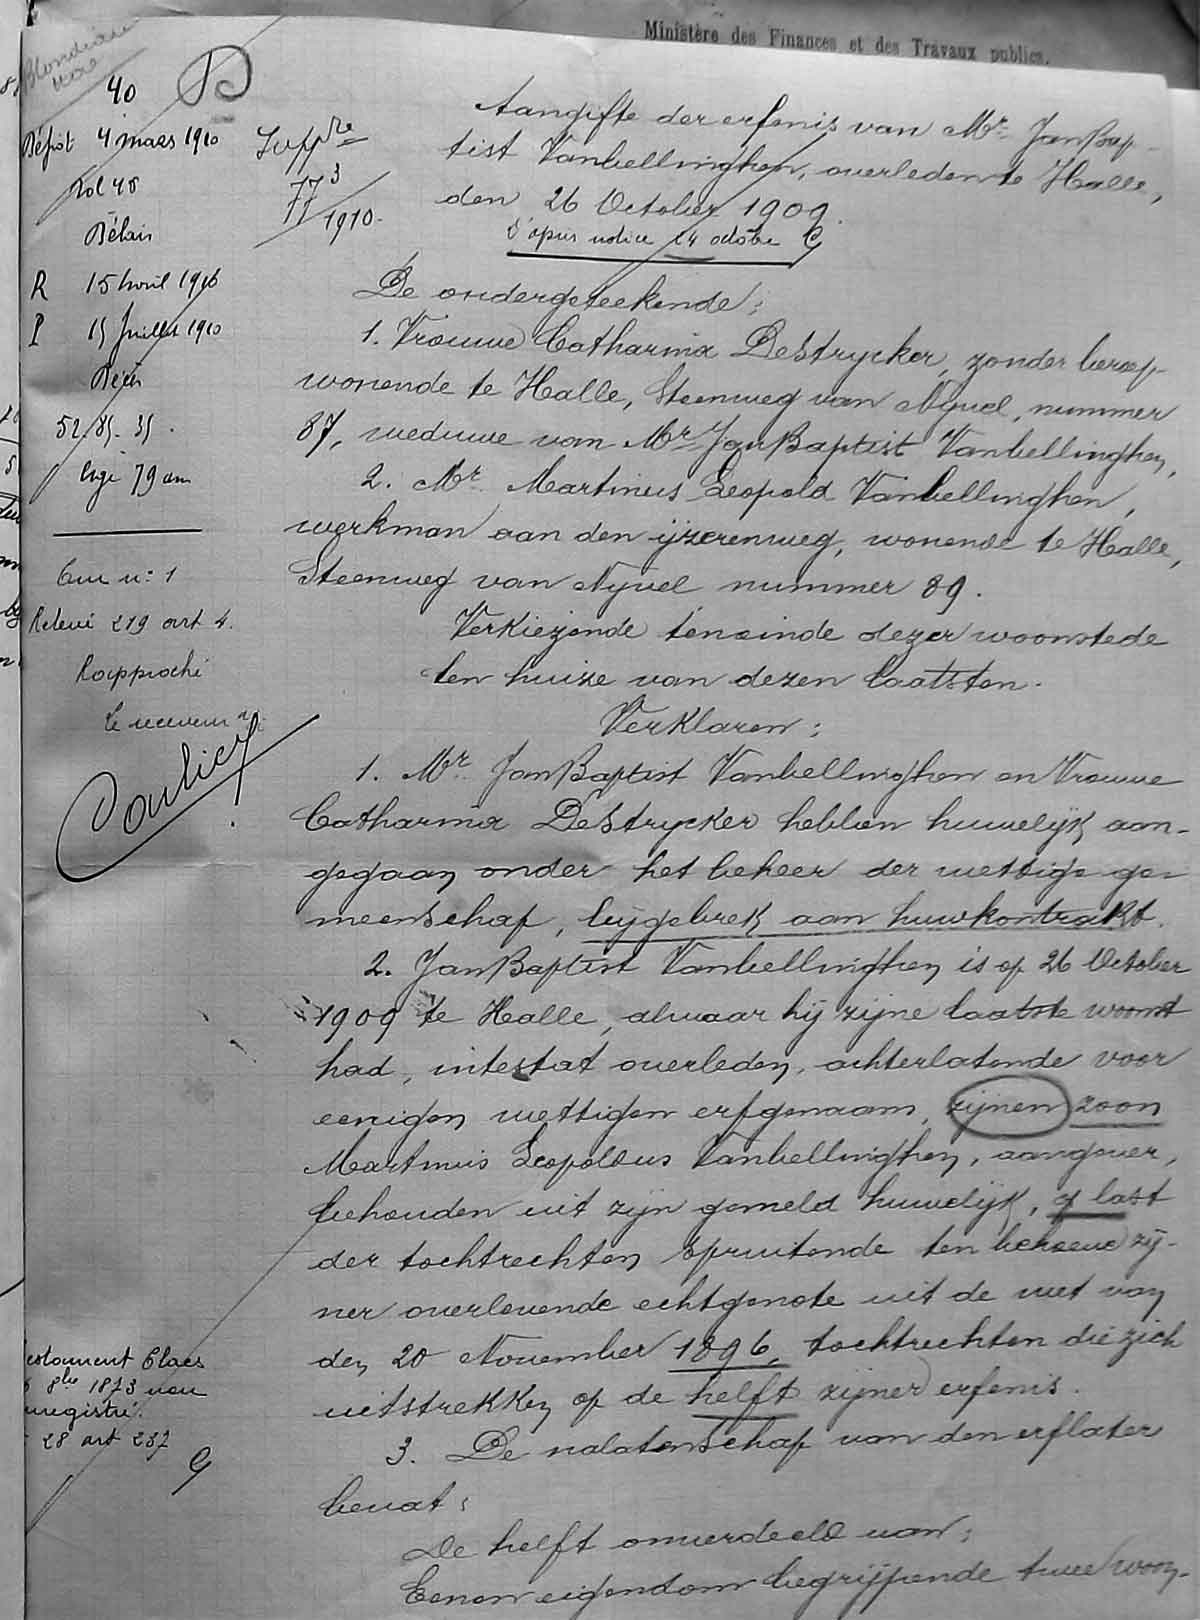 Ministère des Finances et des Travaux publics.
40
B
Dépôt 4 mars 1910
Vol 48
Délais
R 15 Avril 1910
P 15 Juillet 1910
52.85.35.
âgé 79 ans
Relevé 219 art 4.
Rapproché
Le receveur
Supp.re
77 3
1910.
Aangifte der erfenis van Mr. Jan Bap-
tist Vanbellinghen, overleden te Halle,
den 26 October 1909.
D'après notice 24 octobre
De ondergeteekende:
1. Vrouwe Catharina DeStrycker, zonder beroep
wonende te Halle, Steenweg van Nyvel, nummer
87, weduwe van Mr. Jan Baptist Vanbellinghen,
2. Mr. Martinus Leopold Vanbellinghen,
werkman aan den ijzerenweg, wonende te Halle,
Steenweg van Nyvel nummer 89.
Verkiezende teneinde dezer woonstede
ten huize van dezen laatsten.
Verklaren:
1. Mr. Jan Baptist Vanbellinghen en Vrouwe
Catharina DeStrycker hebben huwelijk aan-
gegaan onder het beheer der wettige ge-
meenschap, bijgebrek aan huwkontrakt.
2. Jan Baptist Vanbellinghen is op 26 October
1909 te Halle, alwaar hij zijne laatste woonst
had, intestat overleden, achterlatende voor
eenigen wettigen erfgenaam, zijnen zoon
Martinus Leopoldus Vanbellinghen, aangever,
behouden uit zijn gemeld huwelijk, op last
der tochtrechten spruitende ten behoeve zij-
ner overlevende echtgenote uit de wet van
den 20 November 1896, tochtrechten die zich
uitstrekken op de helft zijner erfenis.
3. De nalatenschap van den erflater
bevat:
De helft onverdeeld van:
Eenen eigendom begrijpende twee woon-
Claes
8bre 1873
28 art 237